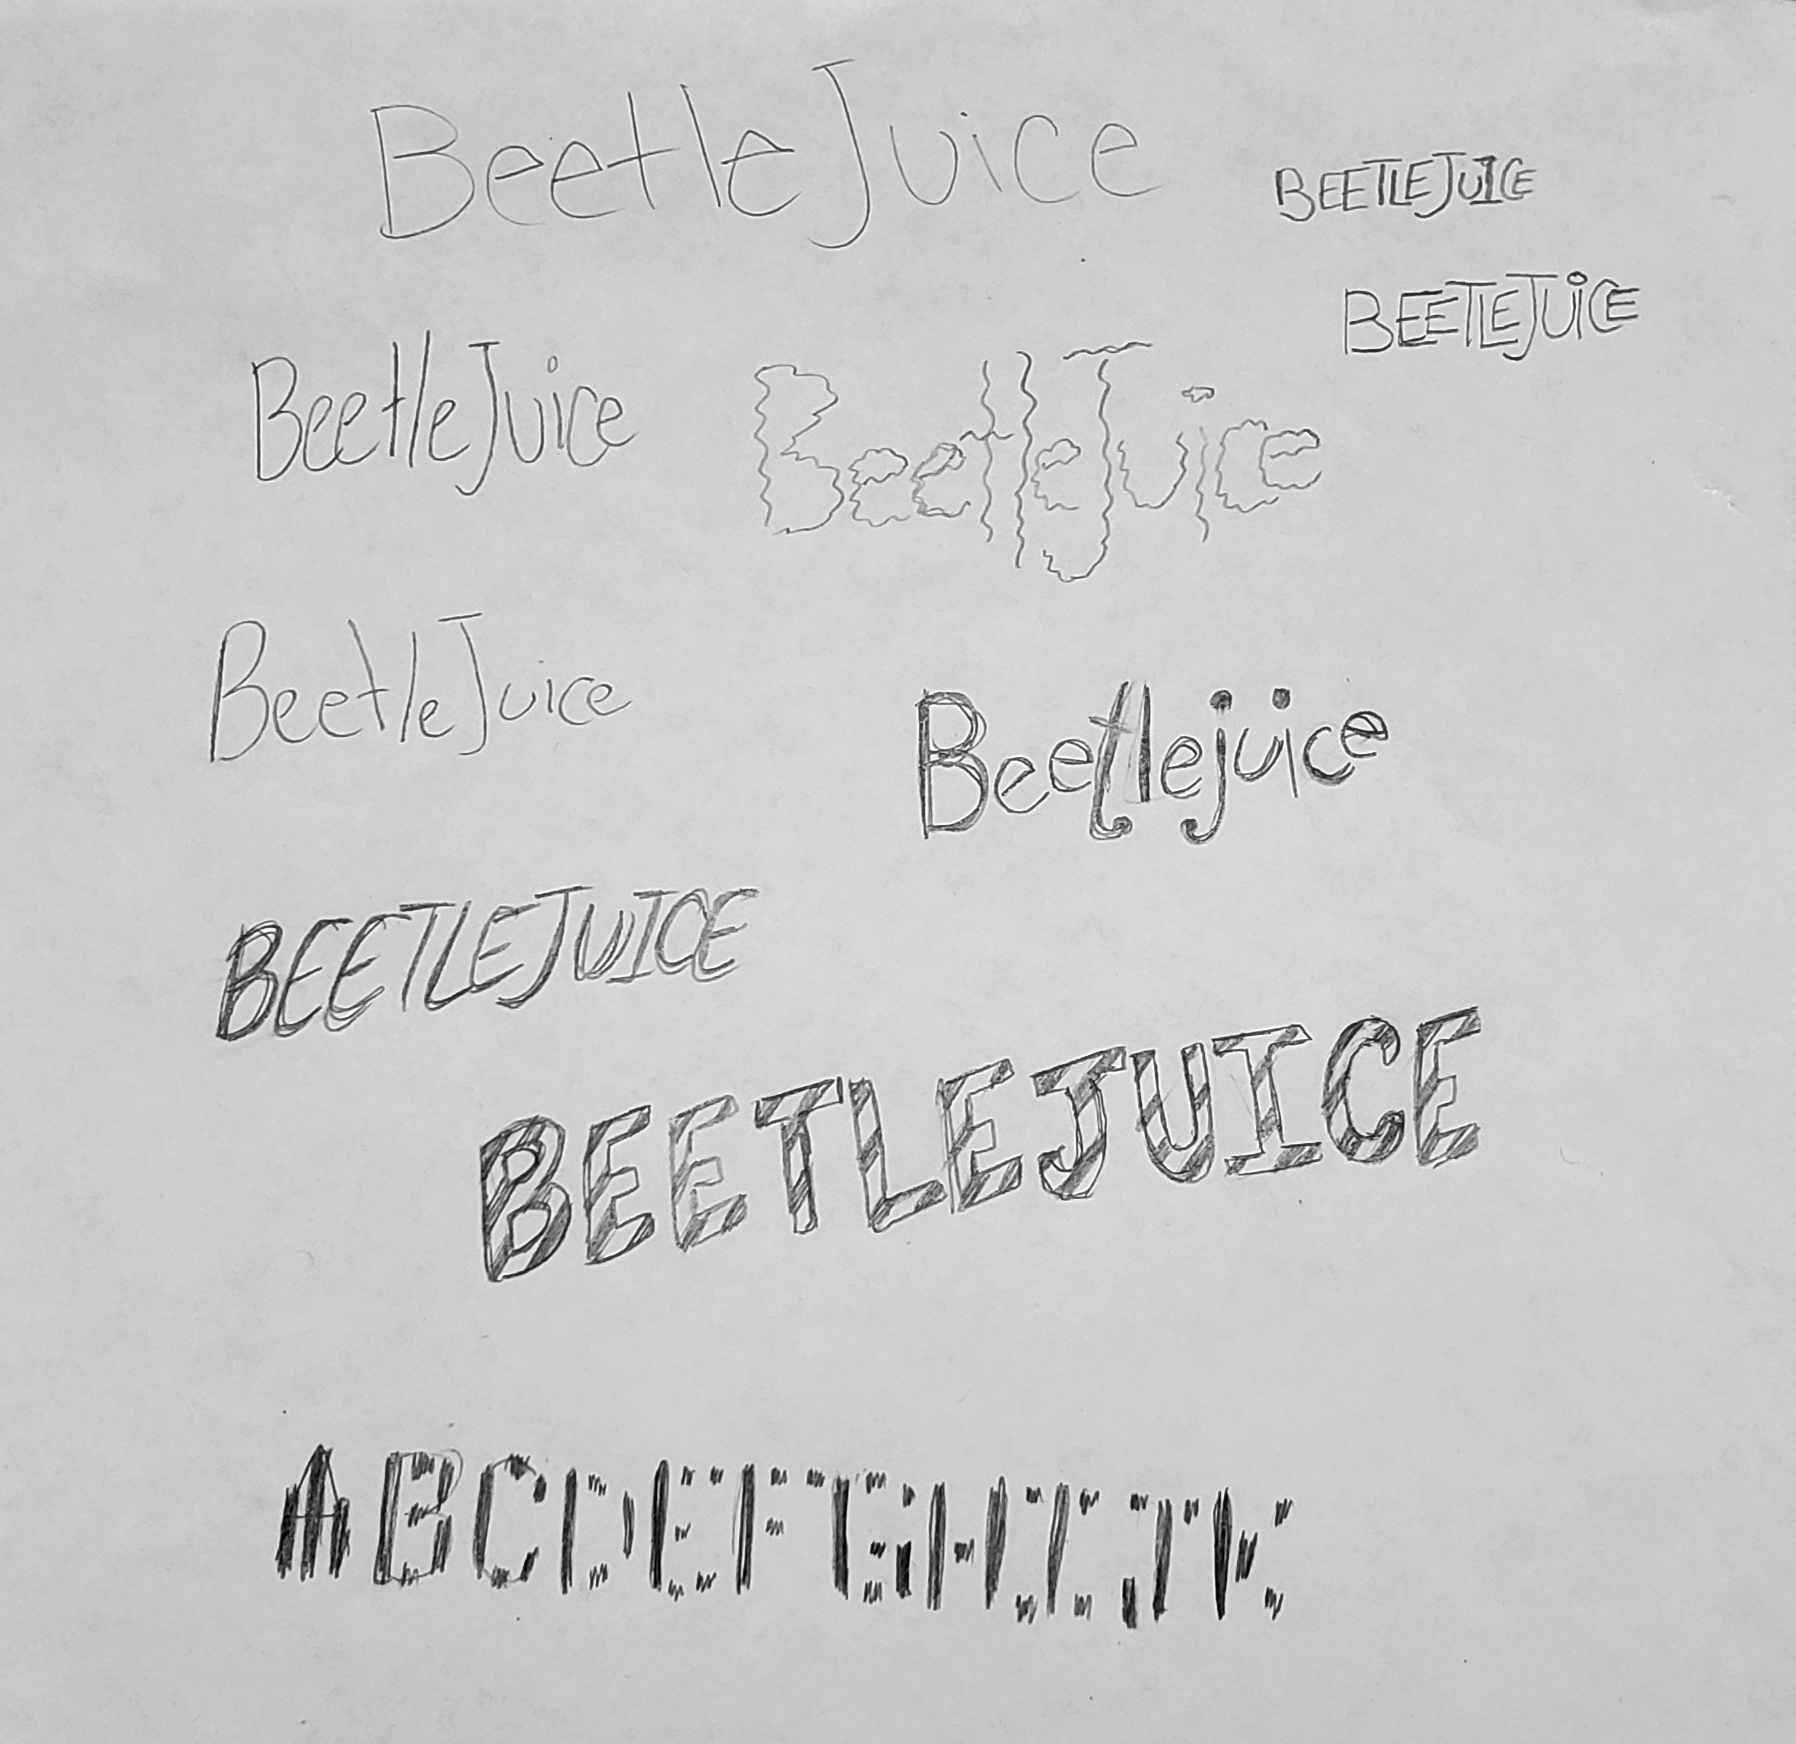 BeetleJuice
BEETLEJUICE
BEETLEJUiCE
BeetleJuice
BeetleJuice
BeetleJuice
Beetlejuice
BEETLEJUICE
BEETLEJUICE
ABCDEFGHIJK